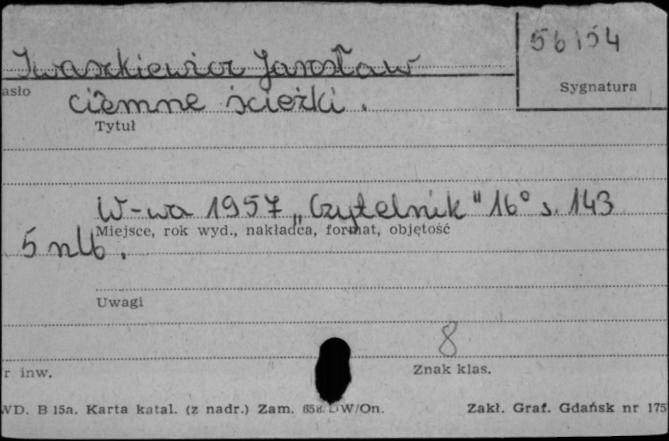 56154
Iwaszkiewicz Jarosław
asło
Sygnatura
ciemne ścieżki.
Tytuł
W-wa 1957 „Czytelnik" 16° s. 143
Miejsce, rok wyd., nakładca, format, objętość
5 nlb.
Uwagi
8
r inw.
Znak klas.
WD. B 15a. Karta katal. (z nadr.) Zam. W/On.
Zakł. Graf. Gdańsk nr 175